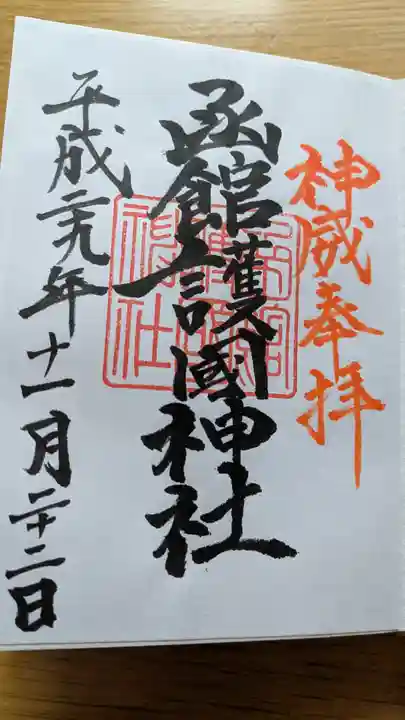 神威奉拝
函館護國神社
平成二十九年十一月二十二日